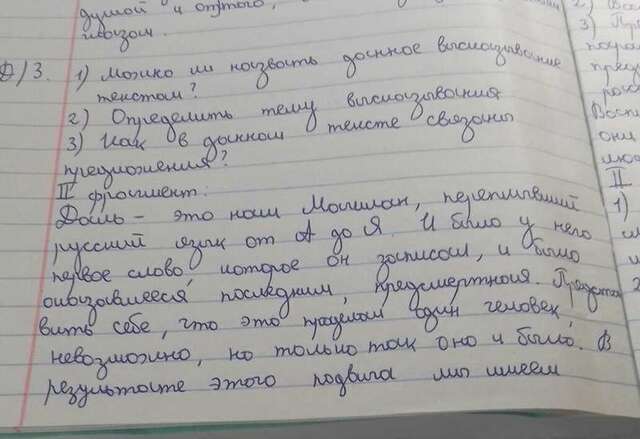 думой и
Д/З. 1) Можно ли назвать данное высказывание
текстом?
2) Определить тему высказывания
3) Как в данном тексте связаны
предложения?
II фрагмент:
Даль – это наш Магеллан, переплывший
русский язык от А до Я. И было у него
первое слово, которое он записал, и было
оказавшееся последним, предсмертная. Представ
вить себе, что это проделал один человек,
невозможно, но только так оно и было. В
результате этого подвига мы имеем
2)
3)
они
II
1)
2